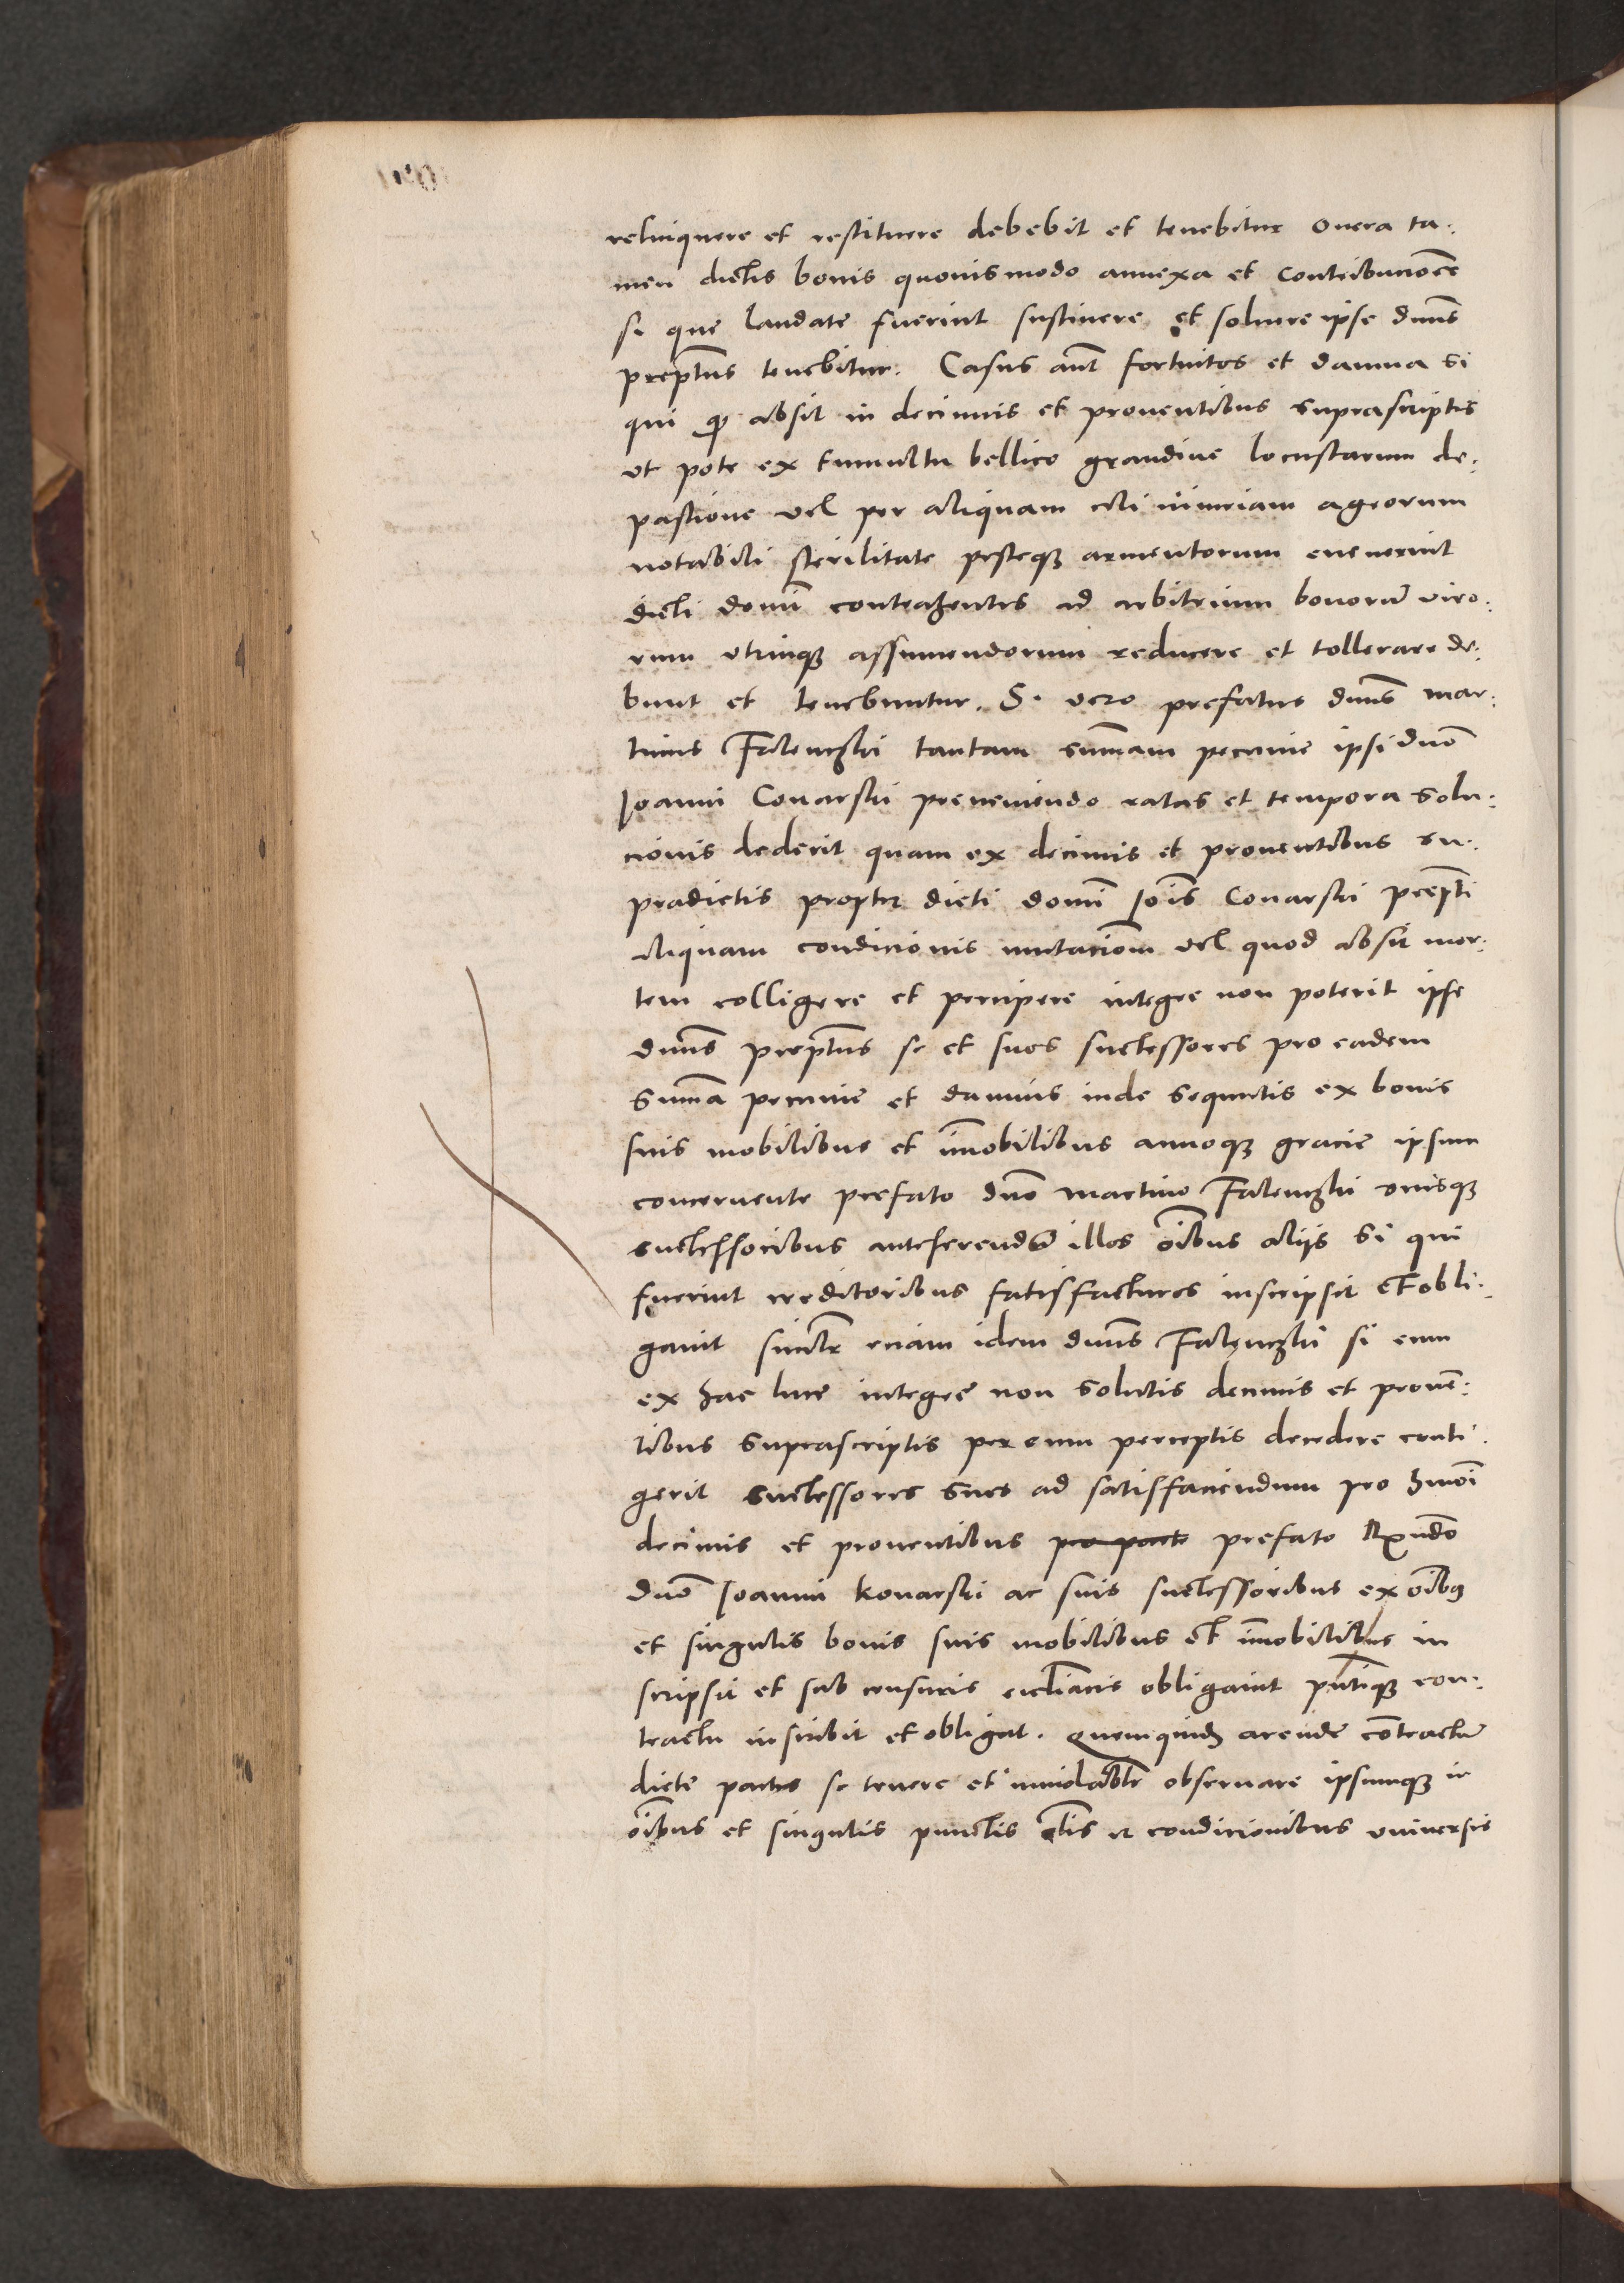 relinquere et restituere debebit et tenebitur onera ta-
men dictis bonis quouismodo annexa et contribucioēs
si que laudate fuerint sustinere et soluere ipse dn̄us
prep̄tus tenebitur. Casus aūt fortuitos et damna si
qui qđ absit in decimis et prouentibus suprascriptis
vt pote ex tumultu bellico grandine locustarum de-
pastione vel per aliquam celi iniuriam agrorum
notabili sterilitate pesteqȝ armentorum euenerint
dicti domī contrahentes ad arbitrium bonorū viro-
rum vtrinqȝ assumendorum reducere et tollerare de-
bunt et tenebuntur. Si vero prefatus dn̄us mar-
tinus Falenczki tantam sum̄am pecunie ipsi dn̄o
Joanni Conarski preueniendo ratas et tempora solu-
cionis dederit quam ex decimis et prouentibus su-
pradictis propter dicti domī Jōis Conarski prep̄ti
aliquam condicionis mutaciom̄ vel quod absit mor-
tem colligere et percipere integre non poterit ipse
dn̄us prep̄tus se et suos successores pro eadem
sum̄a pecunie et damnis inde sequutis ex bonis
suis mobilibus et im̄obilibus annoqȝ gracie ipsum
concernente prefato dn̄o martino Falenczki eiusqȝ
successoribus anteferendo illos oībus aliis si qui
fuerint creditoribus satisfactures inscripsit et obli-
gauit simlr̄ eciam idem dn̄us Falenczki si eum
ex hac luce integre non solutis decimis et prouen-
tibus suprascriptis per eum perceptis decedere conti-
gerit successores suos ad satisfaciendum pro hmōi
decimis et prouentibus pro parte prefato Rx̄ndo
dn̄o Joanni konarski ac suis successoribus ex oībȝ
et singulis bonis suis mobilibus et im̄obilibus in
scripsit et sub censuris eccl̄iacis obligauit pn̄tiqȝ con-
tractu inscribit et obligat. Quemquidȝ arende cōtractū
dicte partes se tenere et inuiolablr̄ obseruare ipsumqȝ in
oībus et singulis punctis cl̄is et condicionibus vniuersis